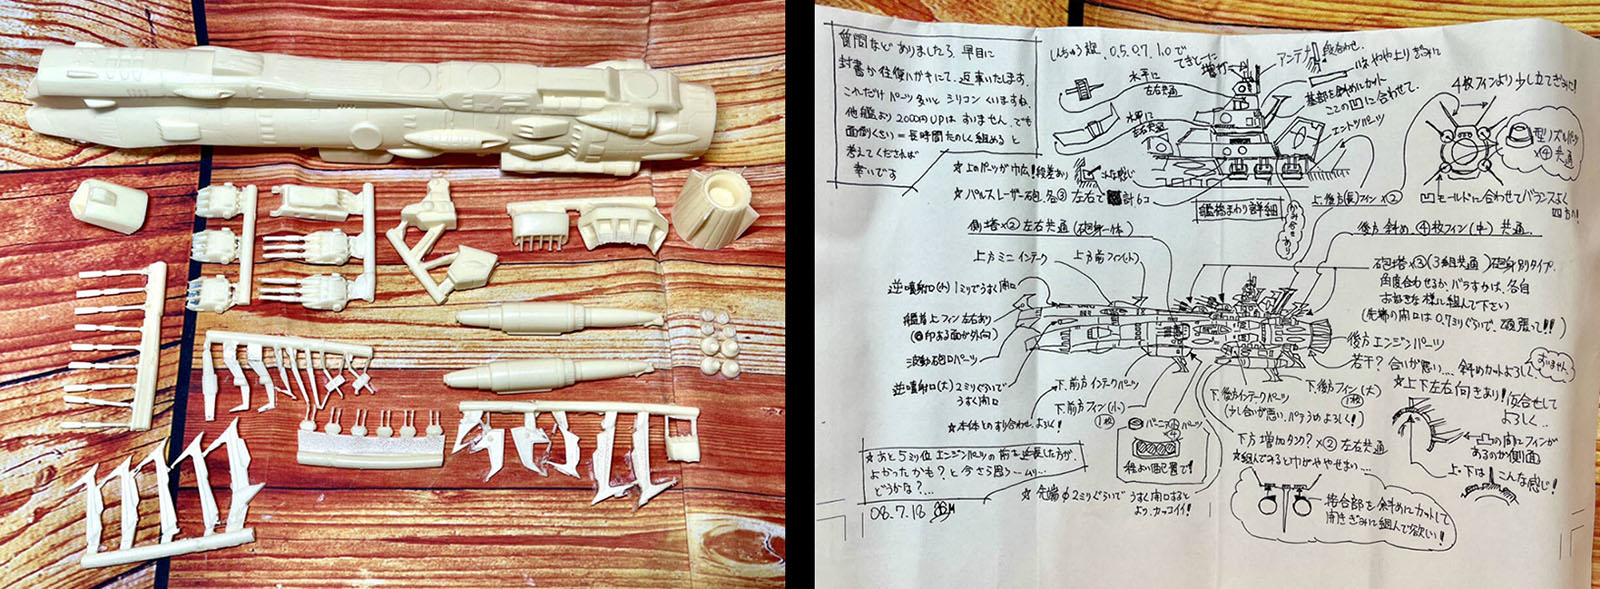 質問など ありましたら、早目に
封書か往復ハガキにて、返事いたします.
これだけ パーツ多いと シリコンくいますね、
他艦より 2000円UPは すいません。でも
面倒くさい＝長時間たのしく組めると
考えてくだされば
幸いです
しんちゅう線、0.5. 0.7. 1.0で
アンテナ
水平に
左右共通
水平に
左右共通
基部を斜めにカット
ここの凹に合わせて.
エントツパーツ
4枚フィンより少し立てぎみに!
×④共通
凹モールドに合わせてバランスよく
☆上のパーツが巾広!段差あり
こんな感じ
☆パルスレーザー砲 各③ 左右で 計6コ
艦橋まわり詳細
上.後方(長)フィン×②
側塔×②左右共通(砲身一体)
後方斜め.④枚フィン(中)共通.
上方ミニインテーク
上方前フィン(小)
砲塔×③(3組共通)砲身別タイプ.
角度合わせるか、バラすかは、各自
お好きな様に組んで下さい
(先端の開口は0.7ミリぐらいで、頑張って!!)
逆噴射口(小)1ミリでうすく開口
艦首上フィン左右あり
(◎印ある面が外向)
波動砲口パーツ
逆噴射口(大)2ミリぐらいで
うすく開口
後方エンジンパーツ
若干?合いが悪い....斜めカットよろしく
すいません
下.前方インテークパーツ
☆本体とのすり合わせ.よろしく!
下.前方フィン(小)
①枚
下.後方インテークパーツ
(少し合いが悪い.パテうめよろしく!)
下.後方フィン(大)
①枚
☆上下左右向きあり!仮合せして
よろしく..
凸の間にフィンが
あるのが側面
上.下はこんな感じ!
バーニアパーツ
程よい配置で!
下方増加タンク?×②左右共通
☆組んでみると巾がややせまい....
接合部を斜めにカットして
開きぎみに組んで欲しい!
☆あと5ミリ位エンジンパーツの前を延長した方が、
よかったかも?と今さら思う...
どうかな?...
☆先端φ2ミリぐらいで うすく開口すると
より.カッコイイ!
08.7.18